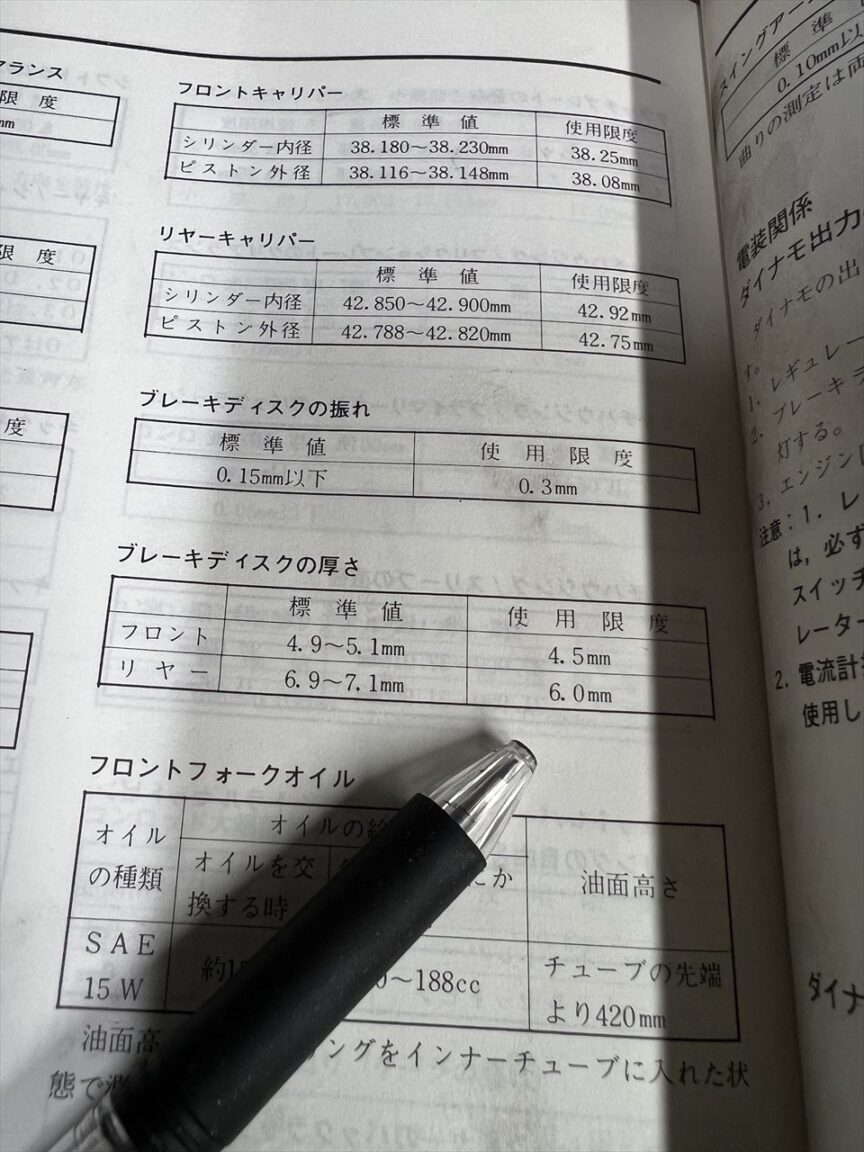 アランス
限 度
mm
限 度
度
フロントキャリパー
標 準 値 使用限度
シリンダー内径 38.180～38.230mm 38.25mm
ピストン外径 38.116～38.148mm 38.08mm
リヤーキャリパー
標 準 値 使用限度
シリンダー内径 42.850～42.900mm 42.92mm
ピストン外径 42.788～42.820mm 42.75mm
ブレーキディスクの振れ
標 準 値 使 用 限 度
0.15mm以下 0.3mm
ブレーキディスクの厚さ
標 準 値 使 用 限 度
フロント 4.9～5.1mm 4.5mm
リ ヤ ー 6.9～7.1mm 6.0mm
フロントフォークオイル
オイル
の種類
オイルの
オイルを交
換する時
にか
油面高さ
SAE
15W
約1
～188cc
チューブの先端
より420mm
油面高
ングをインナーチューブに入れた状
態で
スイングアー
標 準
0.10mm以
曲りの測定は両
電装関係
ダイナモ出力
ダイナモの出
す。
1. レギュレー
2. ブレーキラ
灯する。
3. エンジン
注意：1. レ
は，必ず
スイッチ
レーター
2. 電流計
使用し
ダイナ